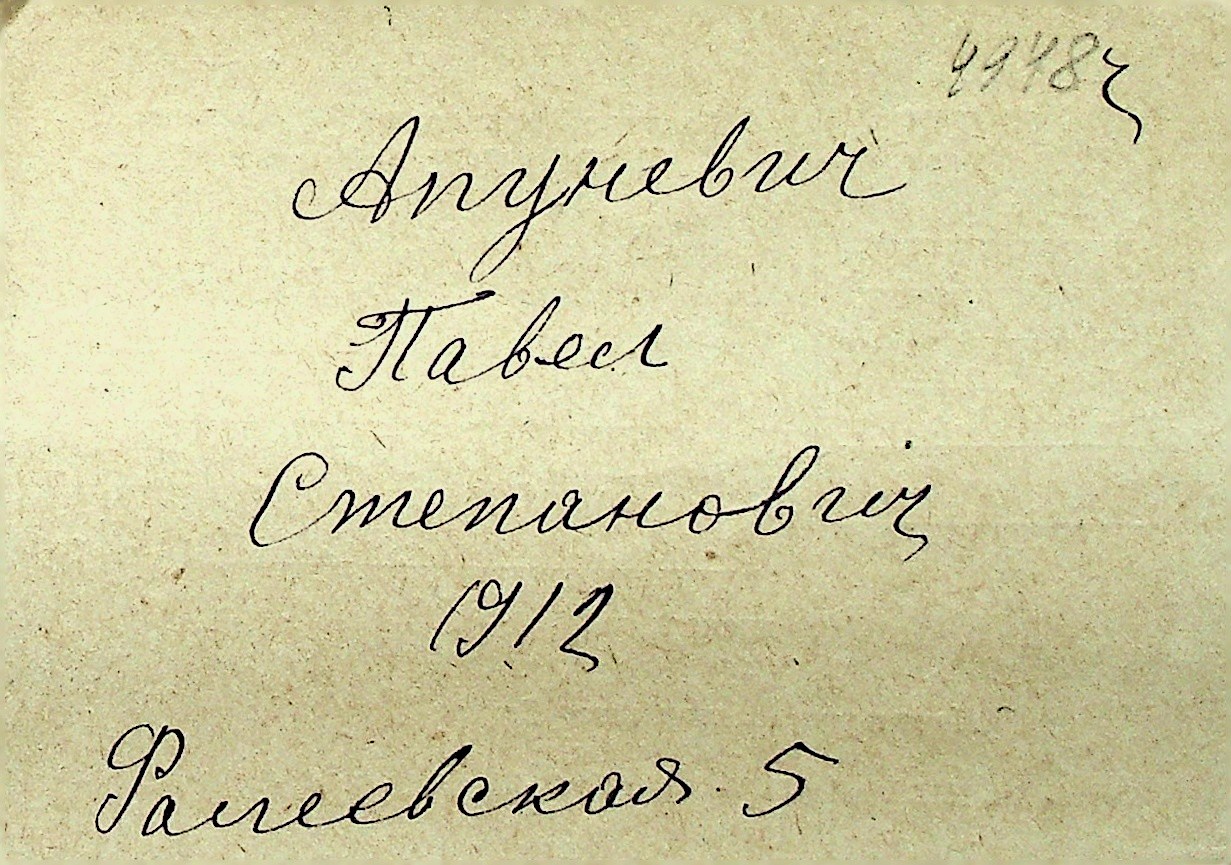 4148 ч
Апуневич
Павел
Степанович
1912
Фалеевская 5